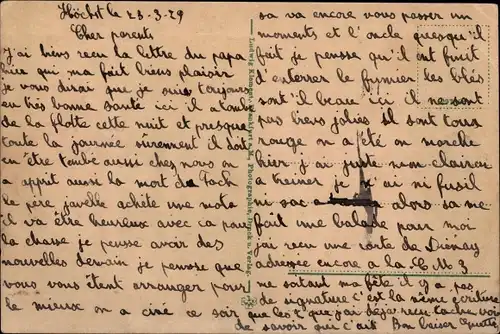 Höchst le 23-3-29
Cher parents
J'ai biens recu la lettre du papa
qui ma fait biens plaisir
Je vous dirai que je suis toujours
en très bonne santé ici il a tombé
de la flotte cette nuit et presque
toute la journée sûrement il doit
en être tombé aussi chez nous on
a apprit aussi la mort de Foch
le père javelle achète une moto
il va être heureux avec ca pour
la chasse je pense avoir des
nouvelles demain je pensse que
vous vous étent arranger pour
le mieux on a ciré ce soir
sa va encore vous passer un
moments et l'oncle quesqu'il
fait je pensse qu'il ont finit
d'esterrer le fumier les blés
sont'il beau ici il ne sont
pas biens jolies il sont tous
rouge on a été en marche
hier j'ai juste mon clairon
a treiner je n'ai ni fusil
ni sac alors sa me
fait une balade pour moi
j'ai recu une carte de Dienay
adressée encore a la C M 3
ne sotant ma fête il y a pas
de signature c'est la même écriture
que les t' que j'ai déjar recu
de savoir qui c'ait Bon baiser